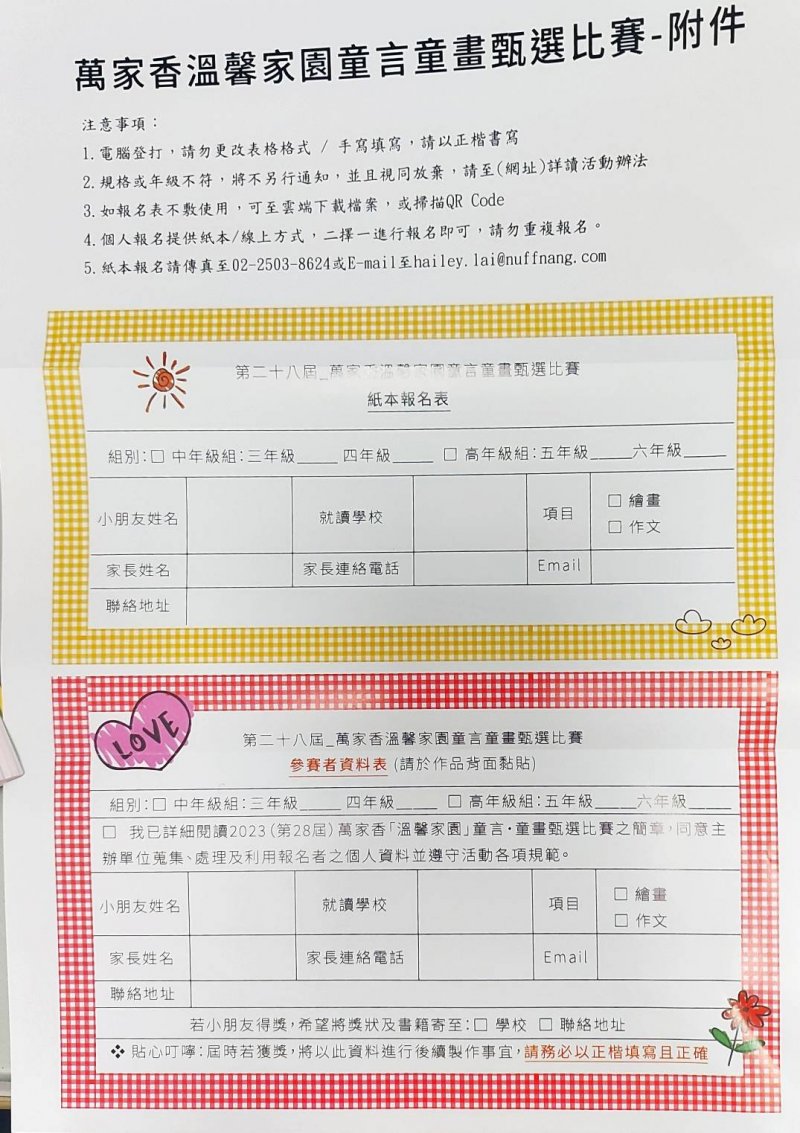 萬家香溫馨家園童言童畫甄選比賽-附件
注意事項：
1.電腦登打，請勿更改表格格式 / 手寫填寫，請以正楷書寫
2.規格或年級不符，將不另行通知，並且視同放棄，請至(網址)詳讀活動辦法
3.如報名表不敷使用，可至雲端下載檔案，或掃描QR Code
4.個人報名提供紙本/線上方式，二擇一進行報名即可，請勿重複報名。
5.紙本報名請傳真至02-2503-8624或E-mail至hailey.lai@nuffnang.com
第二十八屆_萬家香溫馨家園童言童畫甄選比賽
紙本報名表
組別:□ 中年級組:三年級____ 四年級____ □ 高年級組:五年級____六年級____
小朋友姓名 就讀學校 項目 □ 繪畫
□ 作文
家長姓名 家長連絡電話 Email
聯絡地址
LOVE
第二十八屆_萬家香溫馨家園童言童畫甄選比賽
參賽者資料表 (請於作品背面黏貼)
組別:□ 中年級組:三年級____ 四年級____ □ 高年級組:五年級____六年級____
□ 我已詳細閱讀2023(第28屆)萬家香「溫馨家園」童言·童畫甄選比賽之簡章,同意主
辦單位蒐集、處理及利用報名者之個人資料並遵守活動各項規範。
小朋友姓名 就讀學校 項目 □ 繪畫
□ 作文
家長姓名 家長連絡電話 Email
聯絡地址
若小朋友得獎,希望將獎狀及書籍寄至:□ 學校 □ 聯絡地址
❖ 貼心叮嚀:屆時若獲獎,將以此資料進行後續製作事宜,請務必以正楷填寫且正確